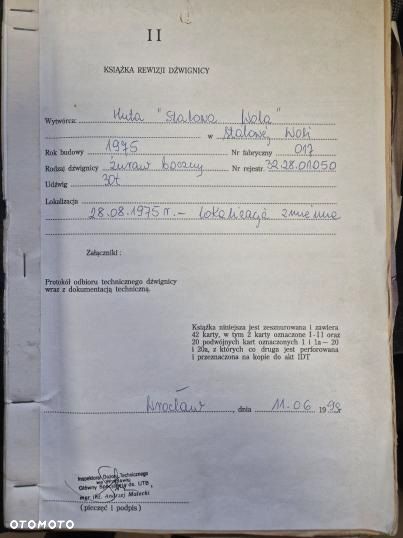 II
KSIĄŻKA REWIZJI DŹWIGNICY
Wytwórca: Huta "Stalowa Wola"
w Stalowej Woli
Rok budowy 1975 Nr fabryczny 017
Rodzaj dźwignicy żuraw boczny Nr rejestr. 32.28.01050
Udźwig 30t
Lokalizacja
28.08.1975 r. - lokalizacja zmienna
Załączniki :
Protokół odbioru technicznego dźwignicy
wraz z dokumentacją techniczną.
Książka niniejsza jest zesznurowana i zawiera
42 karty, w tym 2 karty oznaczone I-II oraz
20 podwójnych kart oznaczonych 1 i 1a — 20
i 20a, z których co druga jest perforowana
i przeznaczona na kopie do akt IDT
Wrocław, dnia 11.06 1998
Inspektorat Dozoru Technicznego
we Wrocławiu
Główny Specjalista ds. UTB
mgr inż. Andrzej Malecki
(pieczęć i podpis)
OTOMOTO